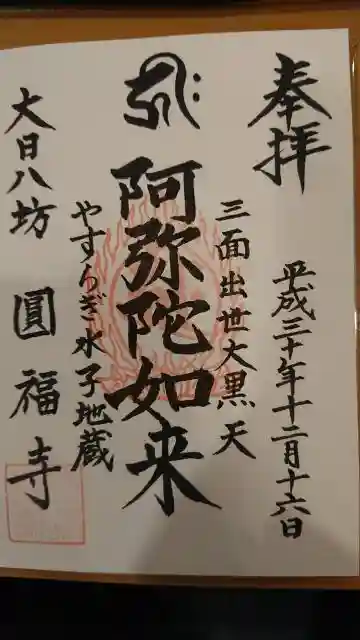 奉拝
平成三十年十二月十六日
三面出世大黒天
阿弥陀如来
やすらぎ水子地蔵
大日八坊 圓福寺